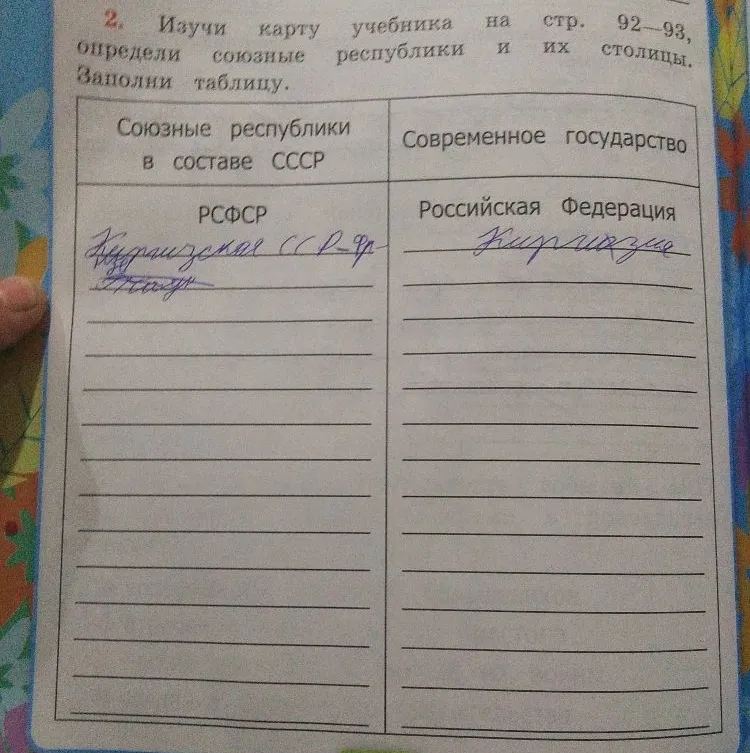 2. Изучи карту учебника на стр. 92—93,
определи союзные республики и их столицы.
Заполни таблицу.
Союзные республики
в составе СССР
Современное государство
РСФСР
Российская Федерация
Киргизская ССР-Фр
Киргизия